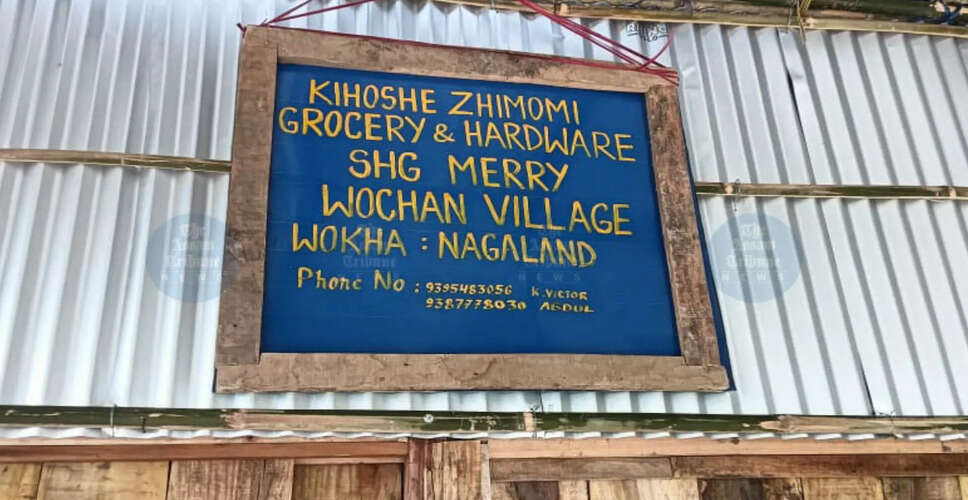 KIHOSHE ZHIMOMI
GROCERY & HARDWARE
SHG MERRY
WOCHAN VILLAGE
WOKHA : NAGALAND
Phone No : 9395483056 K. VICTOR
9387778030 ABDUL
The Assam Tribune
NEWS
The Assam Tribune
NEWS